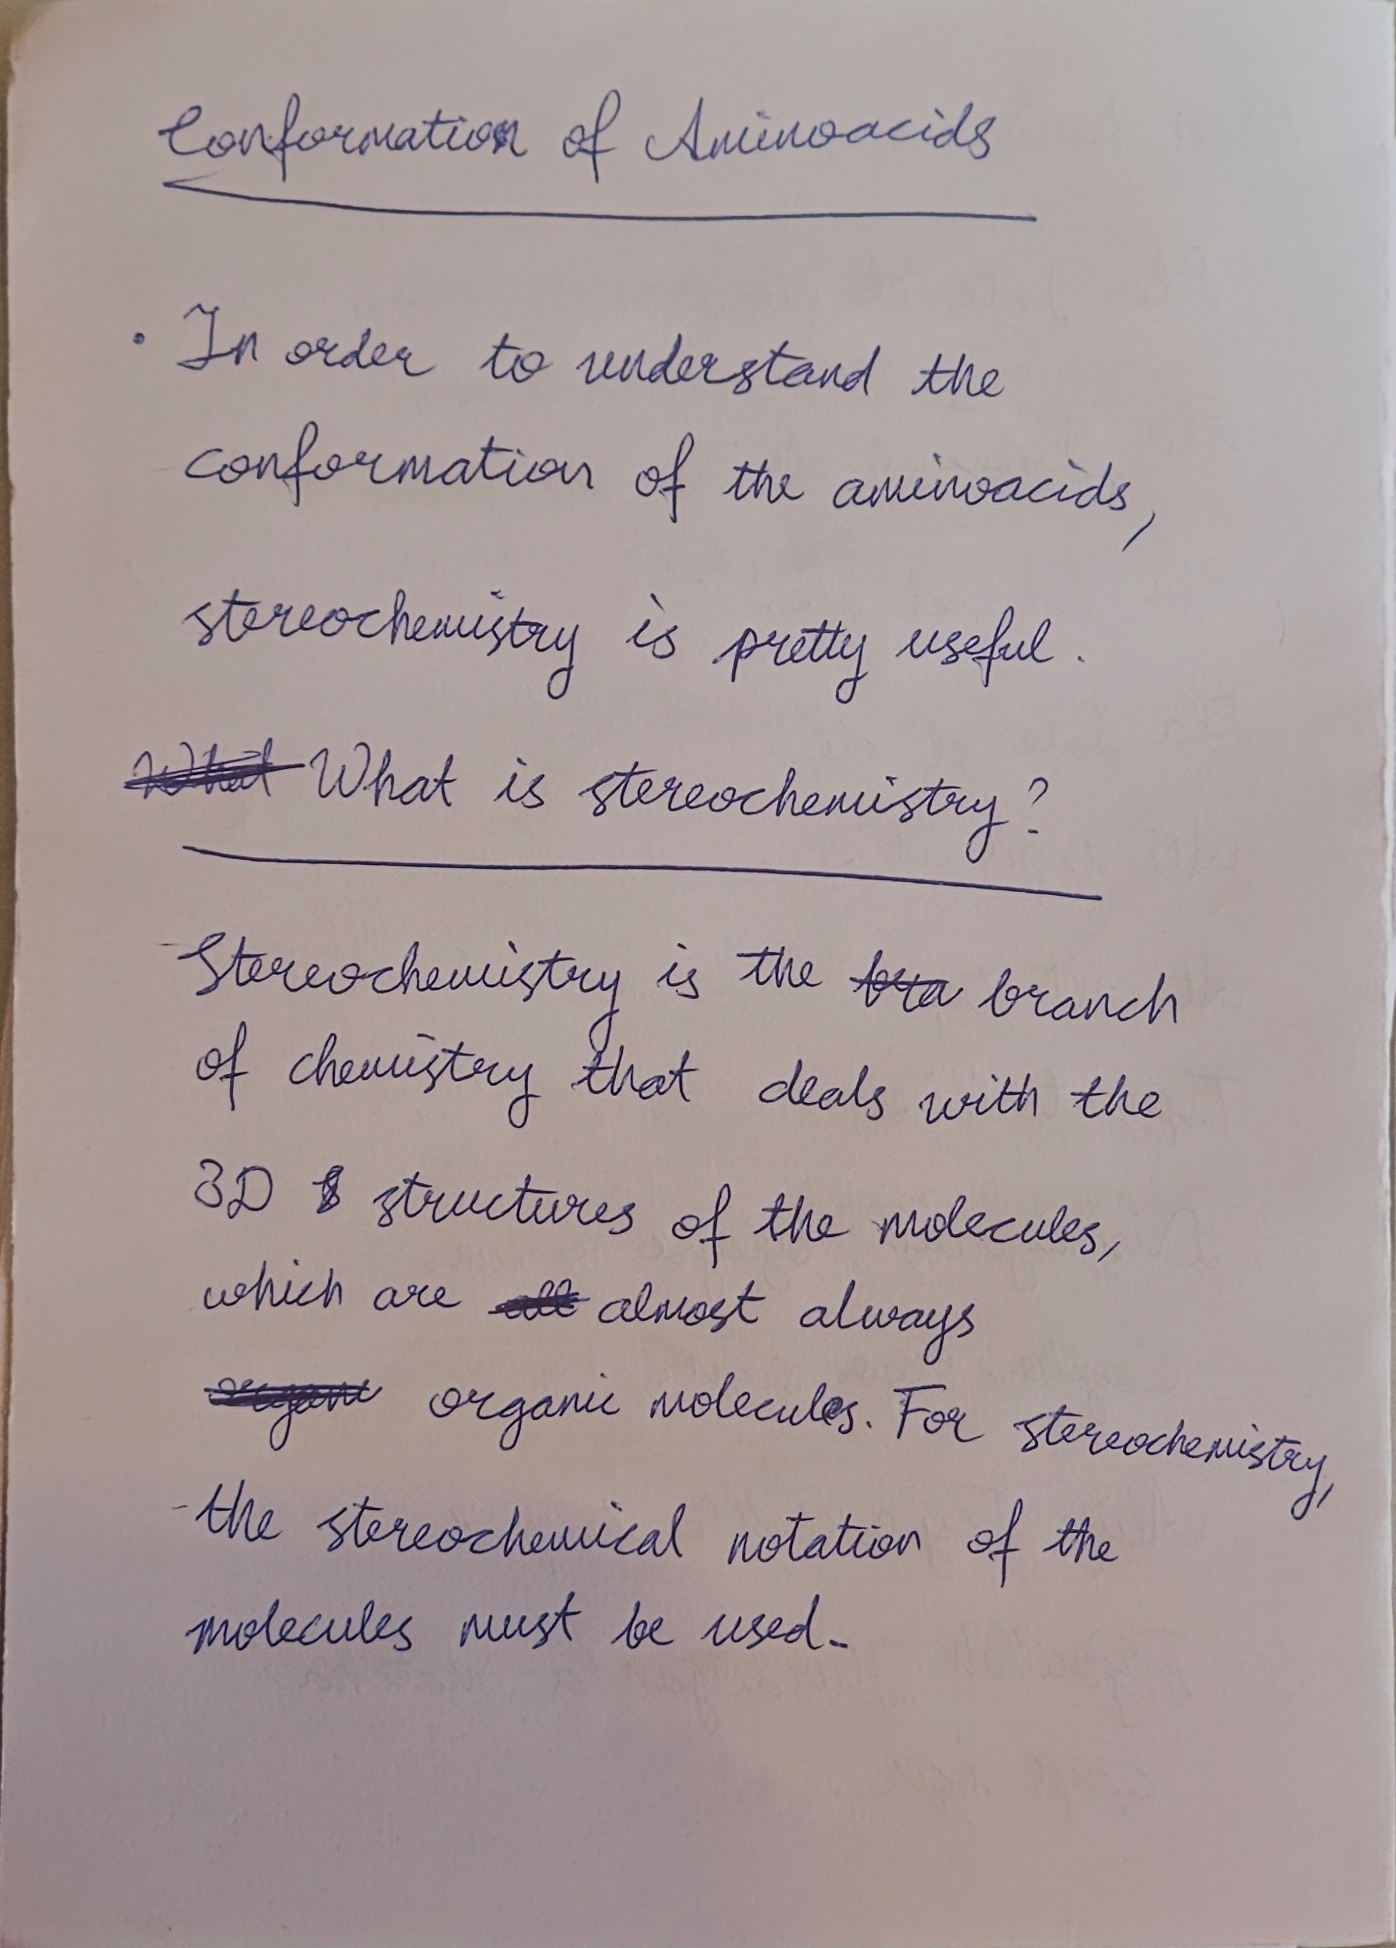 Conformation of Aminoacids
• In order to understand the
conformation of the aminoacids,
stereochemistry is pretty useful.
What What is stereochemistry?
Stereochemistry is the bra branch
of chemistry that deals with the
3D structures of the molecules,
which are all almost always
organi organic molecules. For stereochemistry,
the stereochemical notation of the
molecules must be used.